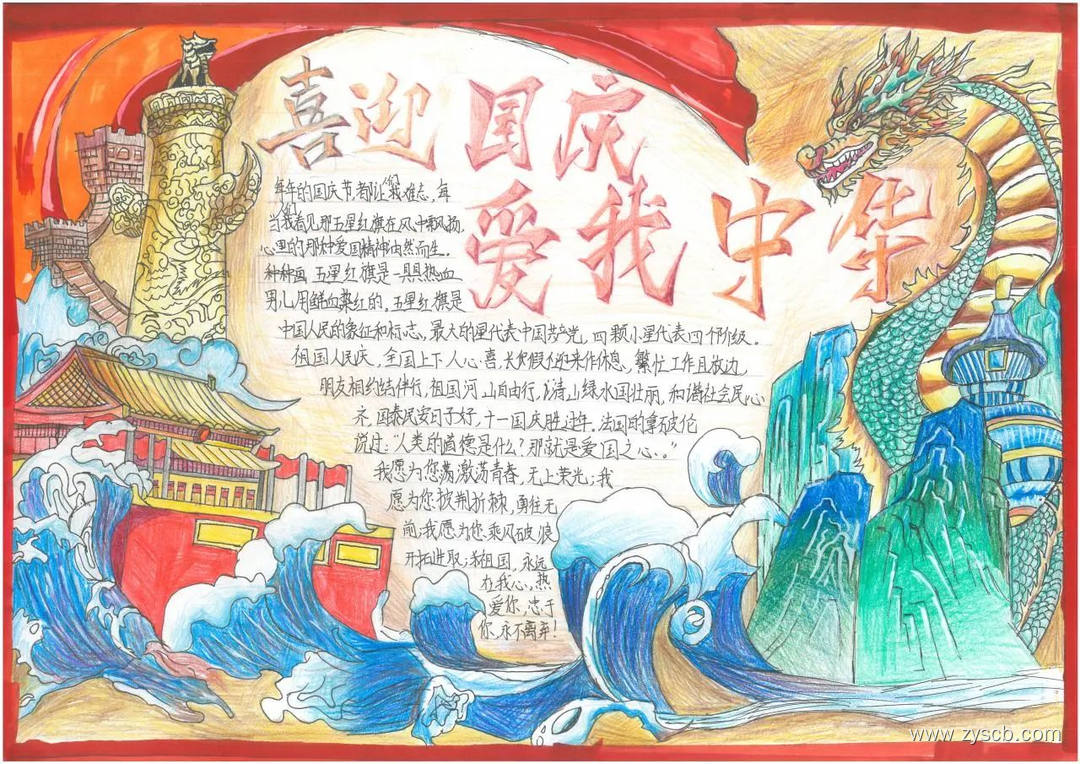 喜迎国庆
爱我中华
每年的国庆节都让我们难忘，每
当我们看见那五星红旗在风中飘扬，
心里的那种爱国精神由然而生。
种种画 五星红旗是一具具热血
男儿用鲜血染红的。五星红旗是
中国人民的象征和标志，最大的星代表中国共产党，四颗小星代表四个阶级。
祖国人民庆，全国上下人心喜，长假不迎来作休息，繁忙工作且放边，
朋友相约结伴行，祖国河山自由行，清山绿水国壮丽，和谐社会民心
齐，国泰民安日子好，十一国庆胜过年。法国的拿破伦
说过：“人类的道德是什么？那就是爱国之心。”
我愿为您激荡青春，无上荣光；我
愿为您披荆折棘，勇往无
前；我愿为您乘风破浪
开拓进取；祖国，永远
在我心，热
爱你，忠于
你，永不离弃！
www.zyscb.com